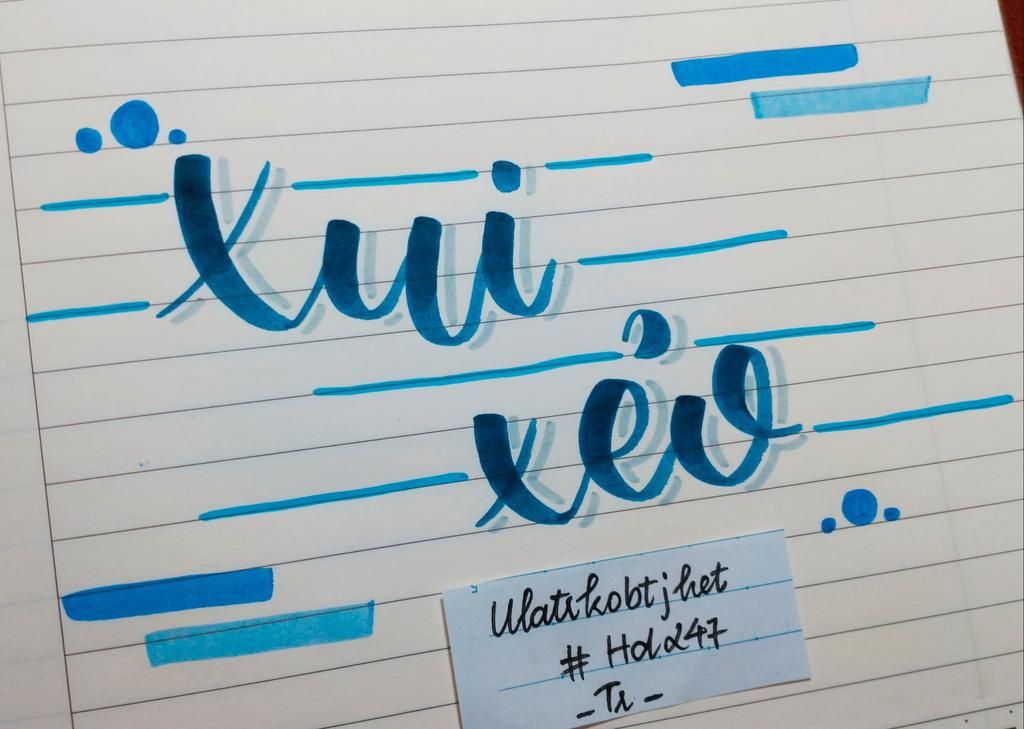 Xui
xẻo
Ulatikobtjhet
# Hdd247
- Ti -